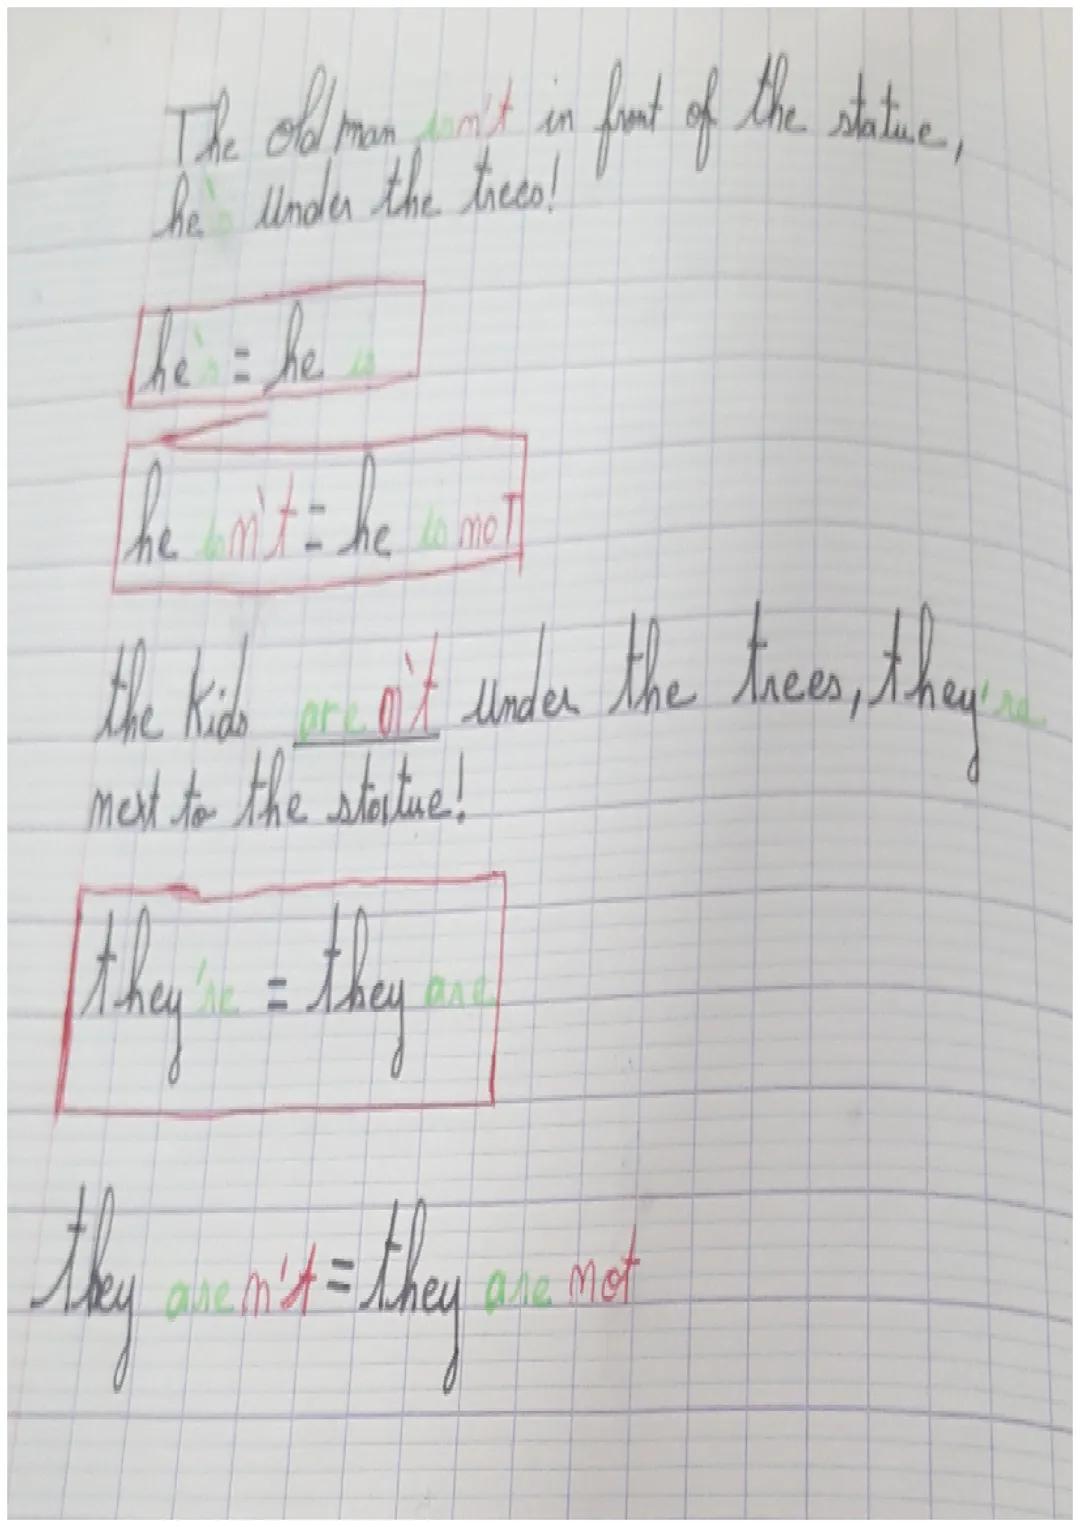 The old man isn't in front of the statue,
he's under the trees!
he's = he is
he isn't = he is not
the kids aren't under the trees, they're
next to the statue!
they're = they are
they aren't = they are not